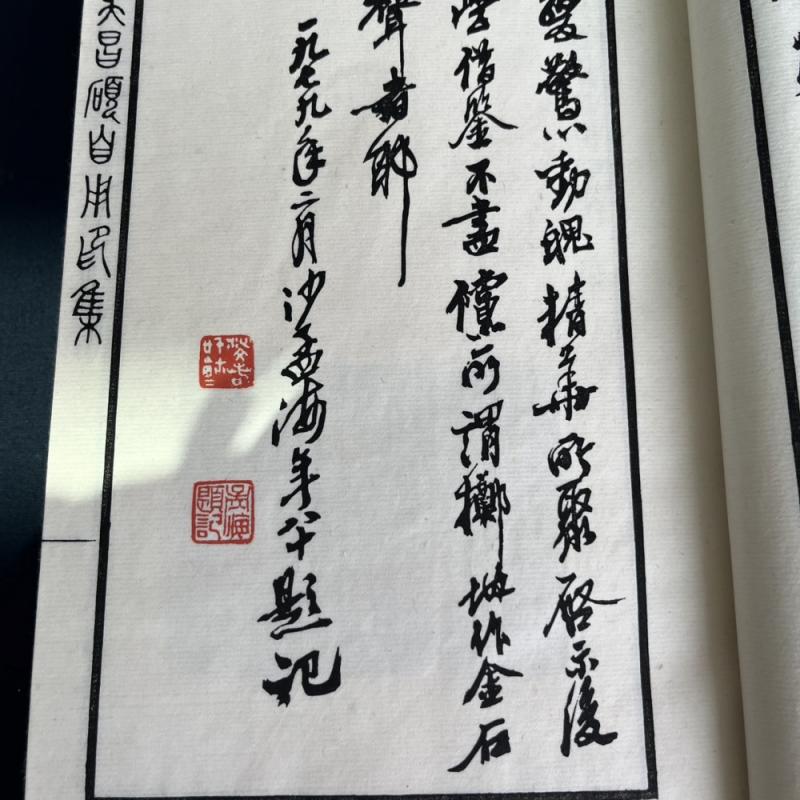 驚心動魄精華所聚啓示後
學借鑒不盡儻所謂擲地作金石
聲者耶
一九七九年二月沙孟海年八十題記
孟海題記
吳昌碩自用印集